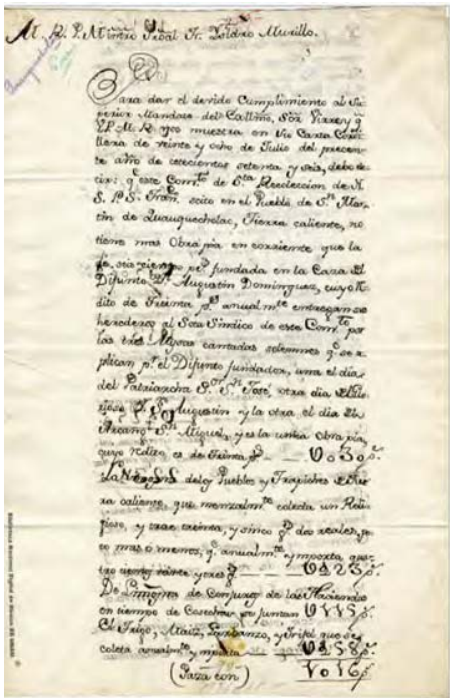 M. R. P. Mintro Proal Fr. Ysidro Murillo.
Para dar el devido Cumplimiento al Su-
perior Mandato del Exmo. Sor. Virrey q
V.P.M.R. nos muestra en su Carta Cordi-
llera de veinte y ocho de Julio del precen-
te año de cetecientos setenta y seis, debo de-
cir: q este Comto de Sta Recoleccion de N.
S. P. S. Franco scito en el Pueblo de Sn Mar-
tin de Quauquecholac, Tierra caliente, no
tiene mas Obra pia en corriente que la
de seis cientos ps fundada en la Caza del
Difunto Dn Augustin Dominguez, cuyo Re-
dito de Treinta ps anualmte entregan sus
herederos al Sota Sindico de este Comto por
las tres Missas cantadas solemnes q se a-
plican pr el Difunto fundador, una el dia
del Patriarcha Sor Sn José, otra dia
Sn Augustin y la otra el dia del
Arcangl Sn Miguel, y es la unica Obra pia,
cuyo redito es de Treinta ps U030ps.
de los Pueblos y Trapiches de tier-
ra caliente, que menzalmte colecta un Reli-
gioso, y trae treinta, y sinco ps dos reales, po-
co mas o menos, q anualmte ymporta qua-
tro cientos veinte y tres ps U423ps.
De Limosna de Conjuros de las Haciendas
en tiempo de Cosechas se juntan U115ps.
El Trigo, Maiz, Garbanzo, y Frijol que se
colecta anualmte ymporta U458ps.
(Paza con) 1016ps.